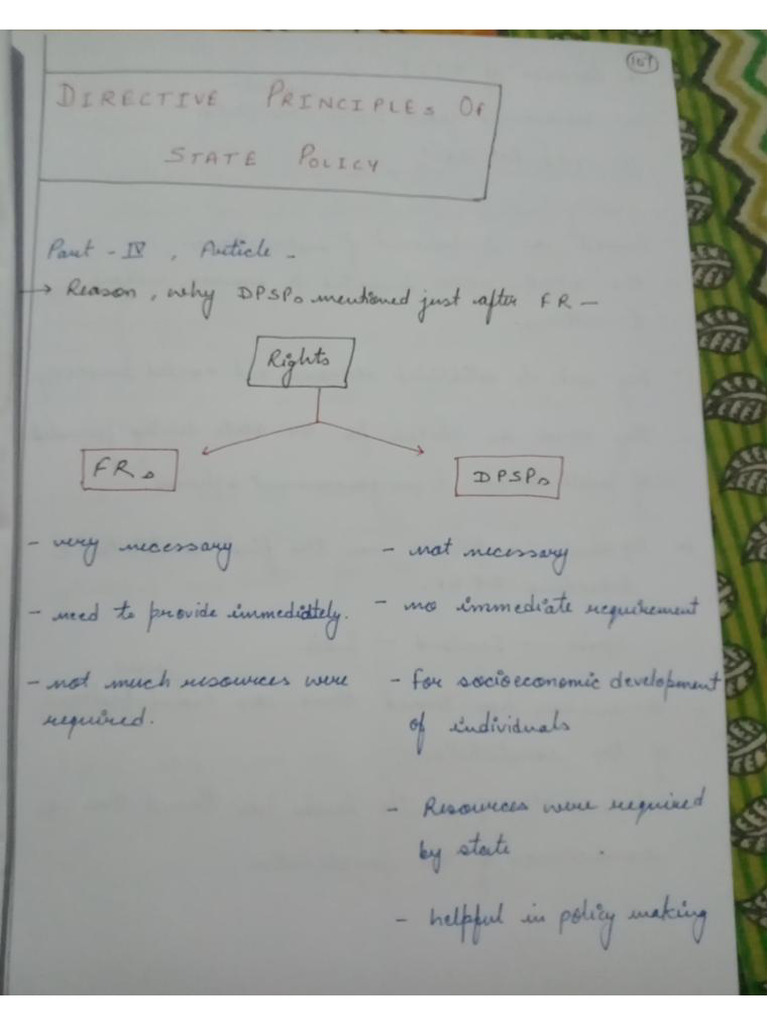 107
DIRECTIVE PRINCIPLES OF
STATE POLICY
Part - IV , Article -
→ Reason, why DPSPs mentioned just after FR -
Rights
FRs
DPSPs
- very necessary
- need to provide immediately.
- not much resources were
required.
- not necessary
- no immediate requirement
- for socioeconomic development
of individuals
- Resources were required
by state
- helpful in policy making